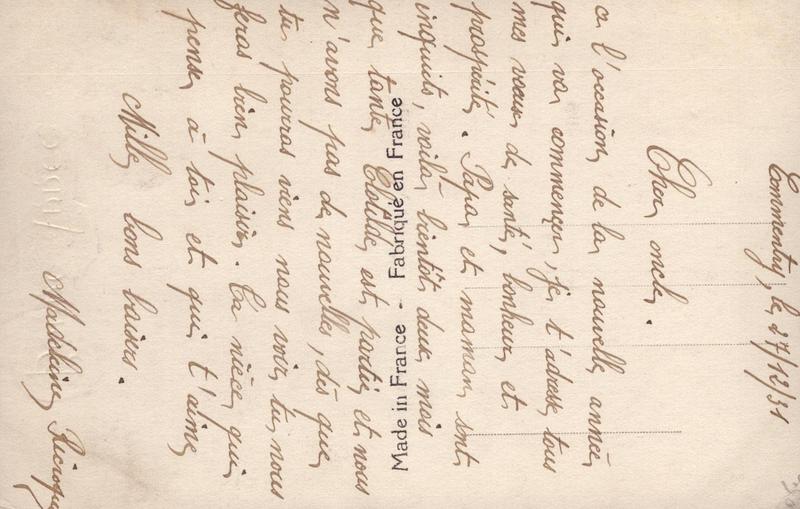 Commentry, le 27/12/31
Cher oncle.
a l'occasion de la nouvelle année
qui va commencer, je t'adresse tous
mes vœux de santé, bonheur et
prospérité. Papa et maman sont
inquiets, voilà bientôt deux mois
que tante Clotilde est partie et nous
n'avons pas de nouvelles, dès que
tu pourras viens nous voir, tu nous
feras bien plaisir. Ta nièce qui
pense à toi et qui t'aime
Mille bons baisers.
Madeleine
Made in France - Fabriqué en France